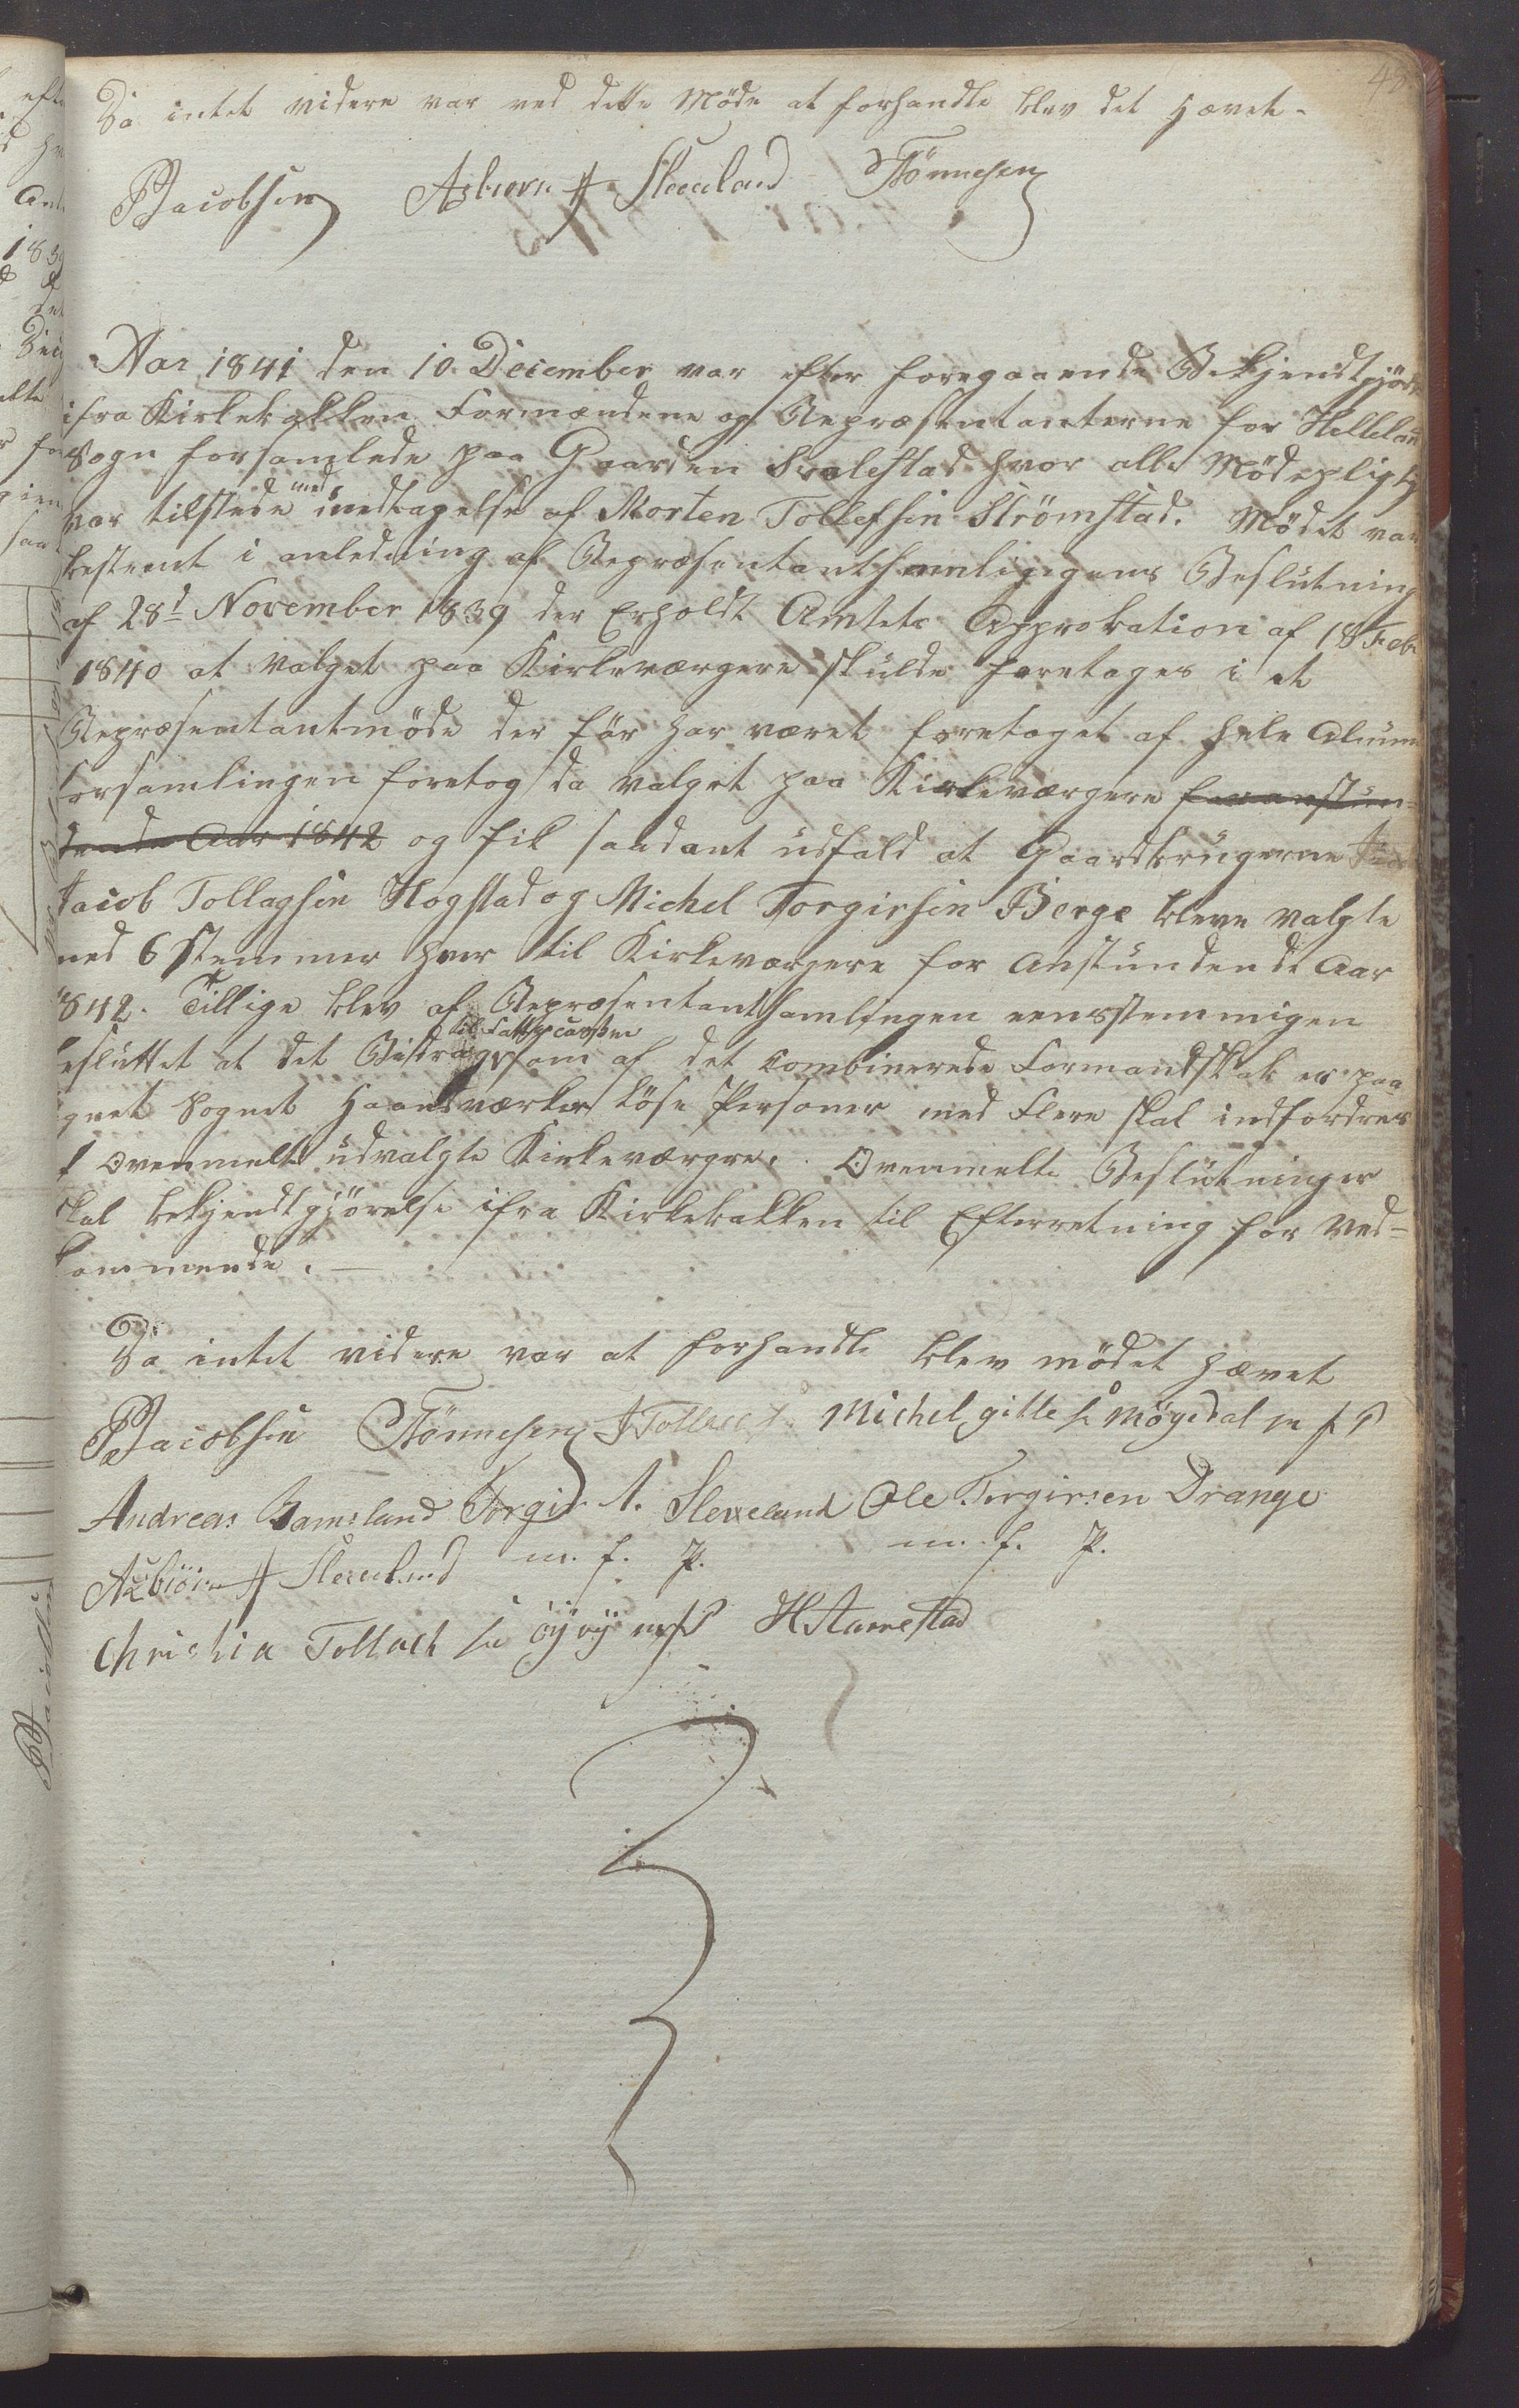 Da intet videre var ved dette Möde at forhandle blev det Hævet.
PJacobsen Asbiørn A Sleveland TTönnesen
Aar 1841 den 10 December var efter foregaaende Bekjendtgjör
ifra Kirkebakken Formændene og Repræsentanterne for Helleland
Sogn forsamlede paa Gaarden Svalestad hvor alle Mödepligtig
var tilstede med undtagelse af Morten Tollefsen Strömstad. Mödet var
bestemt i anledning af Repræsentantsamlingens Beslutning
af 28d November 1839 der Erholdt Amtets Approbation af 18 Feb
1840 at valget paa Kirkeværgere skulde foretages i et
Repræsentantmöde der för har været foretaget af hele Almun
Forsamlingen foretog da valget paa Kirkeværgere for anstun=
dende Aar 1842 og fik saadant udfald at Gaardbrugerne
Jacob Tollagsen Hogstad og Michel Torgiersen Berge bleve valgte
med 6 Stemmer hver til Kirkeværgere for Anstundende Aar
1842. Tillige blev af Repræsentantsamlingen eensstemmigen
besluttet at det Bidrag til Fattigcassen som af det Combinerede Formandskab er paa
lignet Sognets Haandværker löse Personer med Flere skal indfordres
af Ovenmelte udvalgte Kirkeværgere. Ovenmelte Beslutninger
skal bekjendtgjörelse ifra Kirkebakken til Efterretning for Ved=
kommende. —
Da intet videre var at forhandle blev mödet hævet
PJacobsen TTönnesen Michel gitle sen Mögedal m f P
Andreas Ramsland Torgier A. Sleveland Ole Torgiersen Drange
Asbiörn A Sleveland m. f. P. m. f. P.
Christia Tollach sen m f P H Aarrestad